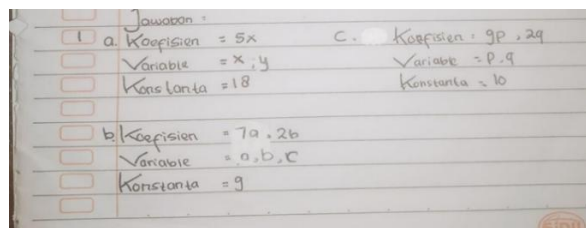 Jawaban :
1 a. Koefisien = 5x
Variable = x, y
Konstanta = 18
b. Koefisien = 7a, 2b
Variable = a, b, c
Konstanta = 9
c. Koefisien = 9p, 2q
Variable = p, q
Konstanta = 10
SIDU